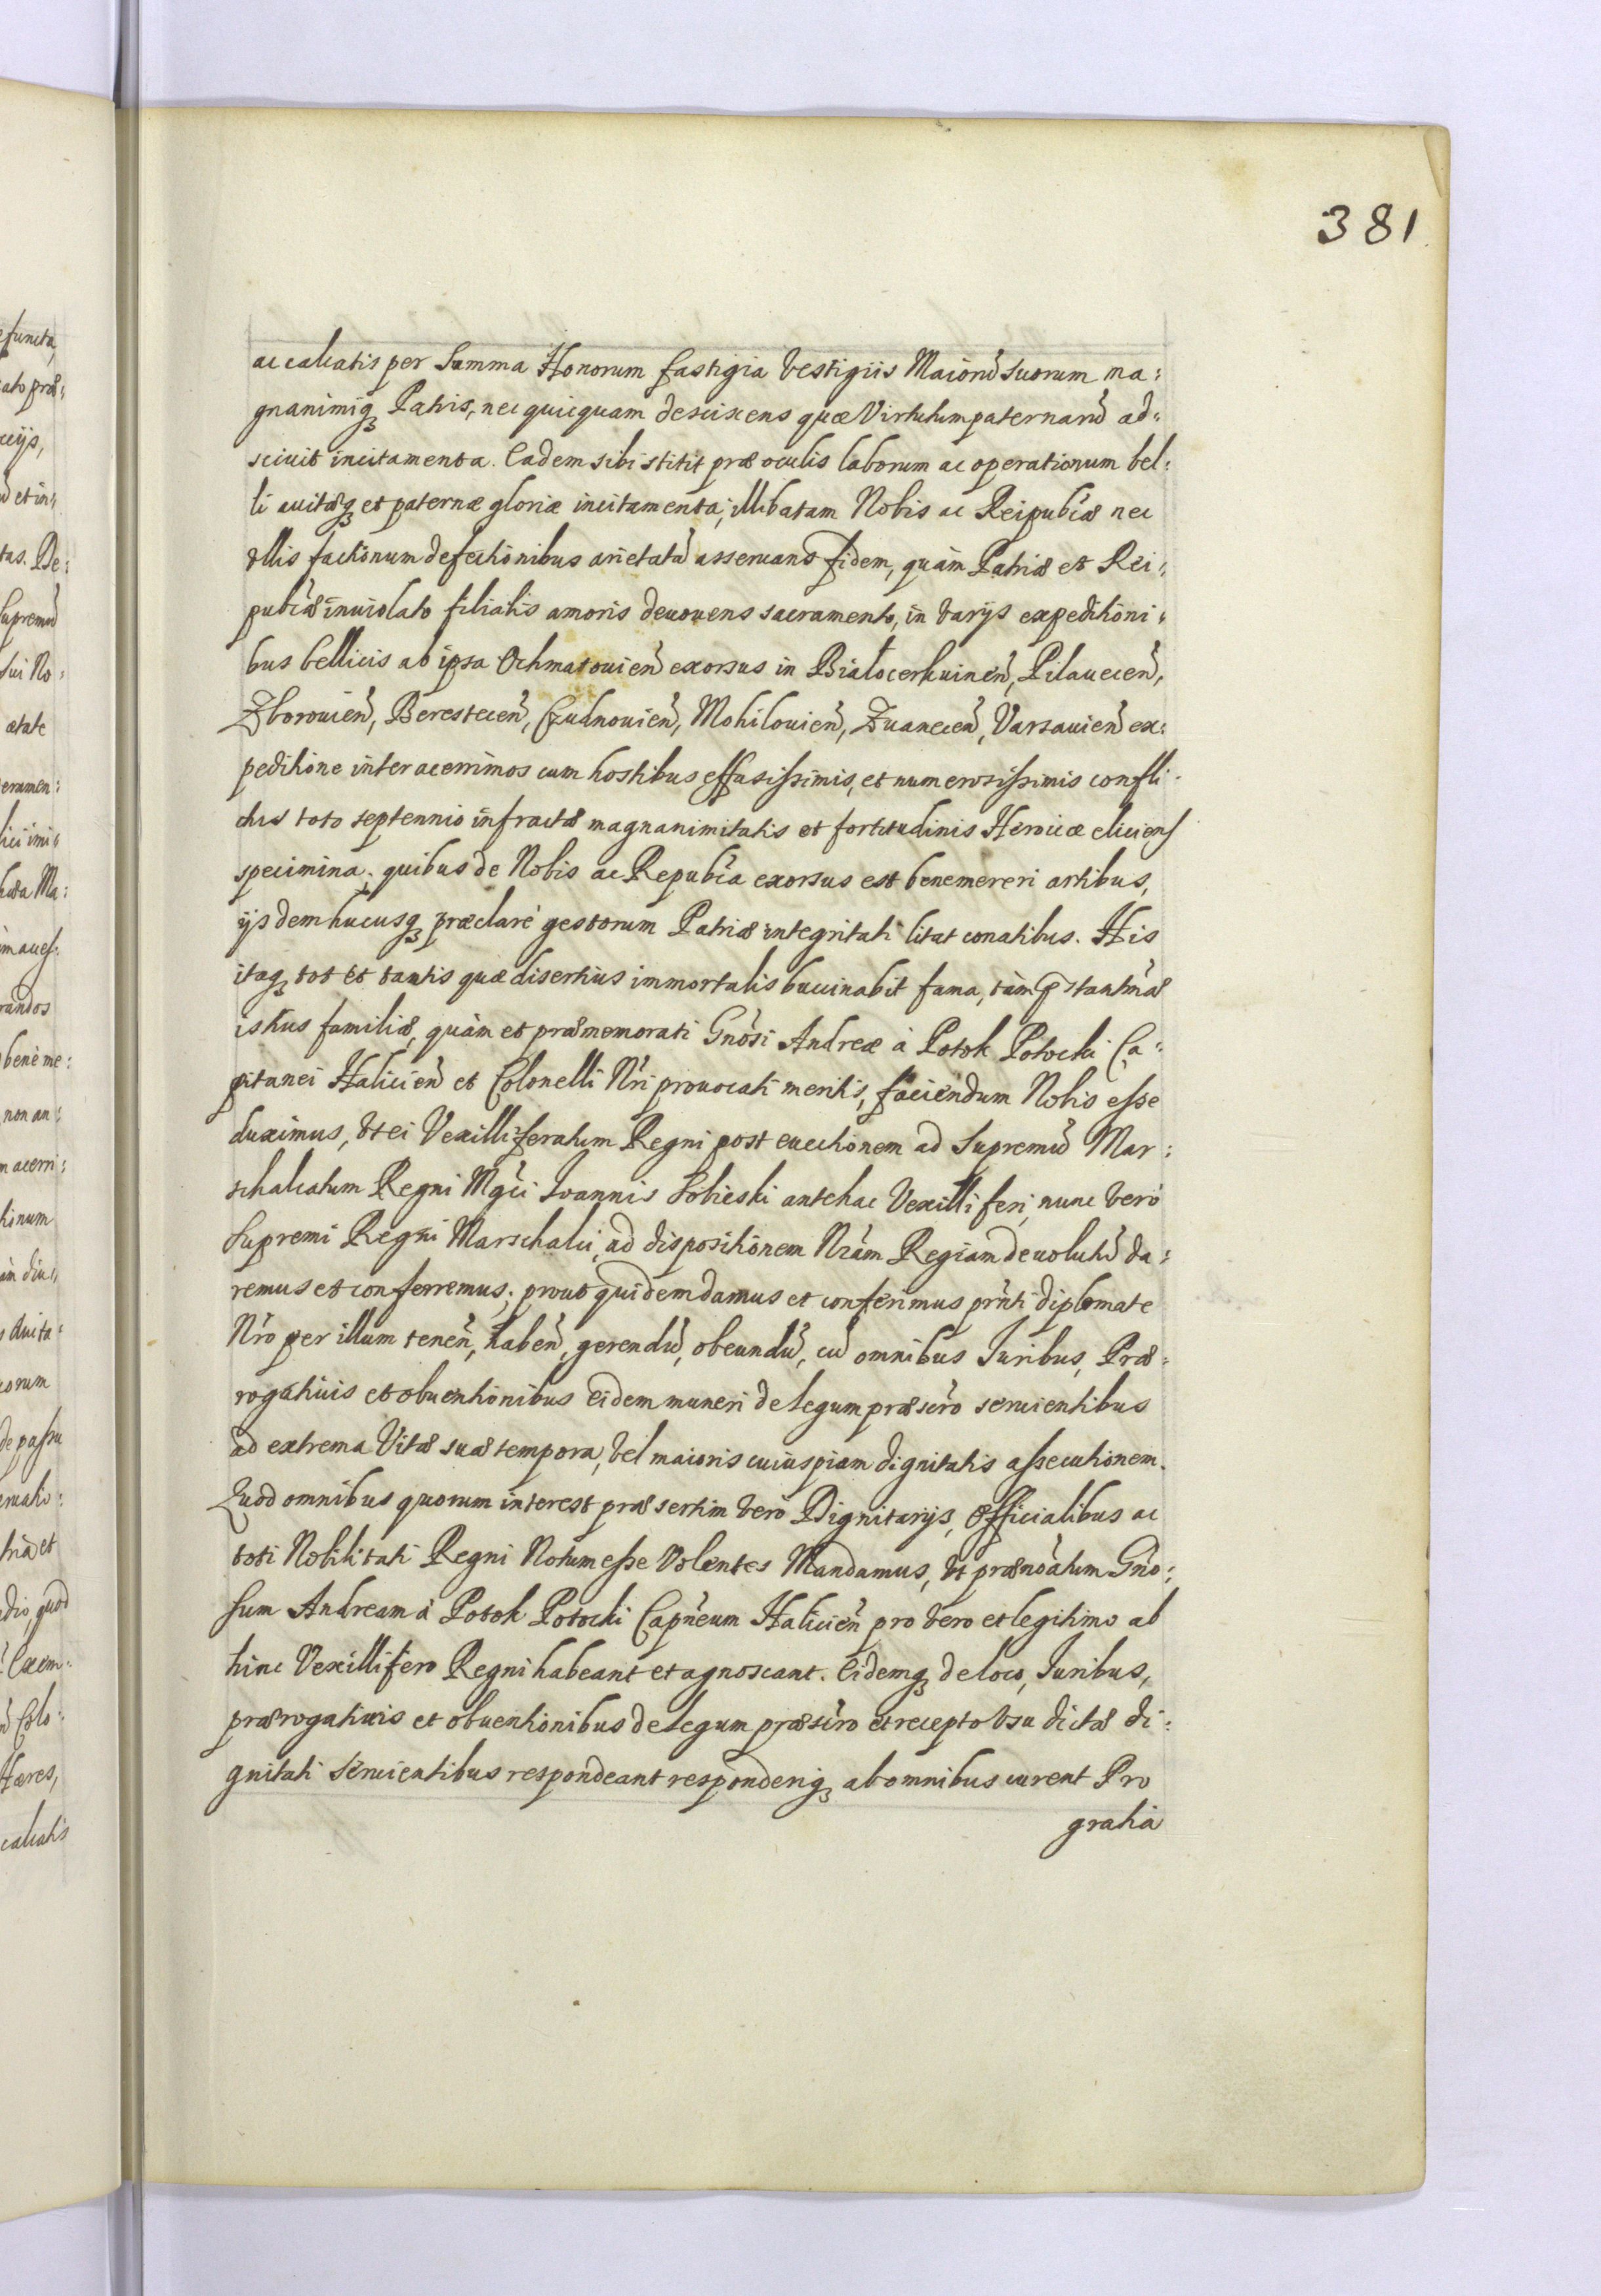 381
ac calcatis per Summa Honorum fastigia vestigiis Maiorũ suorum ma:
gnanimiq3 Patris, nec quicquam desciscens quæ Virtutum paternarũ ad:
sciuit incitamenta. Eadem sibi stitit præ oculis laborum ac operationum bel:
li auitæq3 et paternæ gloriæ incitamenta, illibatam Nobis ac Reipubcæ nec
vllis factionum defectionibus arietatã asseruans fidem, quàm Patriæ et Rei:
pubcæ inuiolato filialis amoris deuouens sacramento, in varijs expeditioni:
bus bellicis ab ipsa Ochmatouien̄ exorsus in Białocerkuinen̄, Pilauecen̄,
Zborouien̄, Berestecen̄, Czudnouien̄, Mohilouien̄, Zuanecen̄, Varsauien̄ ex:
peditione inter acerrimos cum hostibus effusissimis, et numerosissimis confli
ctus toto septennio infractæ magnanimitatis et fortitudinis Heroicæ eliciens
specimina; quibus de Nobis ac Repubca exorsus est benemereri artibus,
ijsdem hucusq3 præclarè gestorum Patriæ integritati litat conatibus. His
itaq3 tot et tantis quæ disertius immortalis buccinabit fama, tàm
istius familiæ, quàm et præmemorati Gnosi Andreæ à Potok Potocki Ca:
pitanei Halicien̄ et Colonelli Nri prouocati meritis, faciendum Nobis esse
duximus, vt ei Vexilliferatum Regni post euectionem ad Supremũ Mar:
schalcatum Regni Mgci Ioannis Sobieski antehac Vexilliferi, nunc verò
Supremi Regni Marschalci, ad dispositionem Nram Regiam deuolutũ da:
remus et conferremus; prout quidem damus et conferimus prnti diplomate
Nro per illum tenen̄, haben̄, gerendũ, obeundũ, cũ omnibus Iuribus, Præ:
rogatiuis et obuentionibus eidem muneri de legum præscro seruientibus
ad extrema Vitæ suæ tempora, vel maioris cuiuspiam dignitatis assecutionem.
Quod omnibus quorum interest præsertim verò Dignitarijs, Officialibus ac
toti Nobilitati Regni Notum esse Volentes Mandamus, vt prænoatum Gno:
sum Andream à Potok Potocki Capneum Halicien̄ pro vero et legitimo ab
hinc Vexillifero Regni habeant et agnoscant. Eidemq3 de loco, Iuribus,
prærogatiuis et obuentionibus de legum præscro et recepto vsu dictæ di:
gnitati seruientibus respondeant responderiq3 ab omnibus curent Pro
gratia